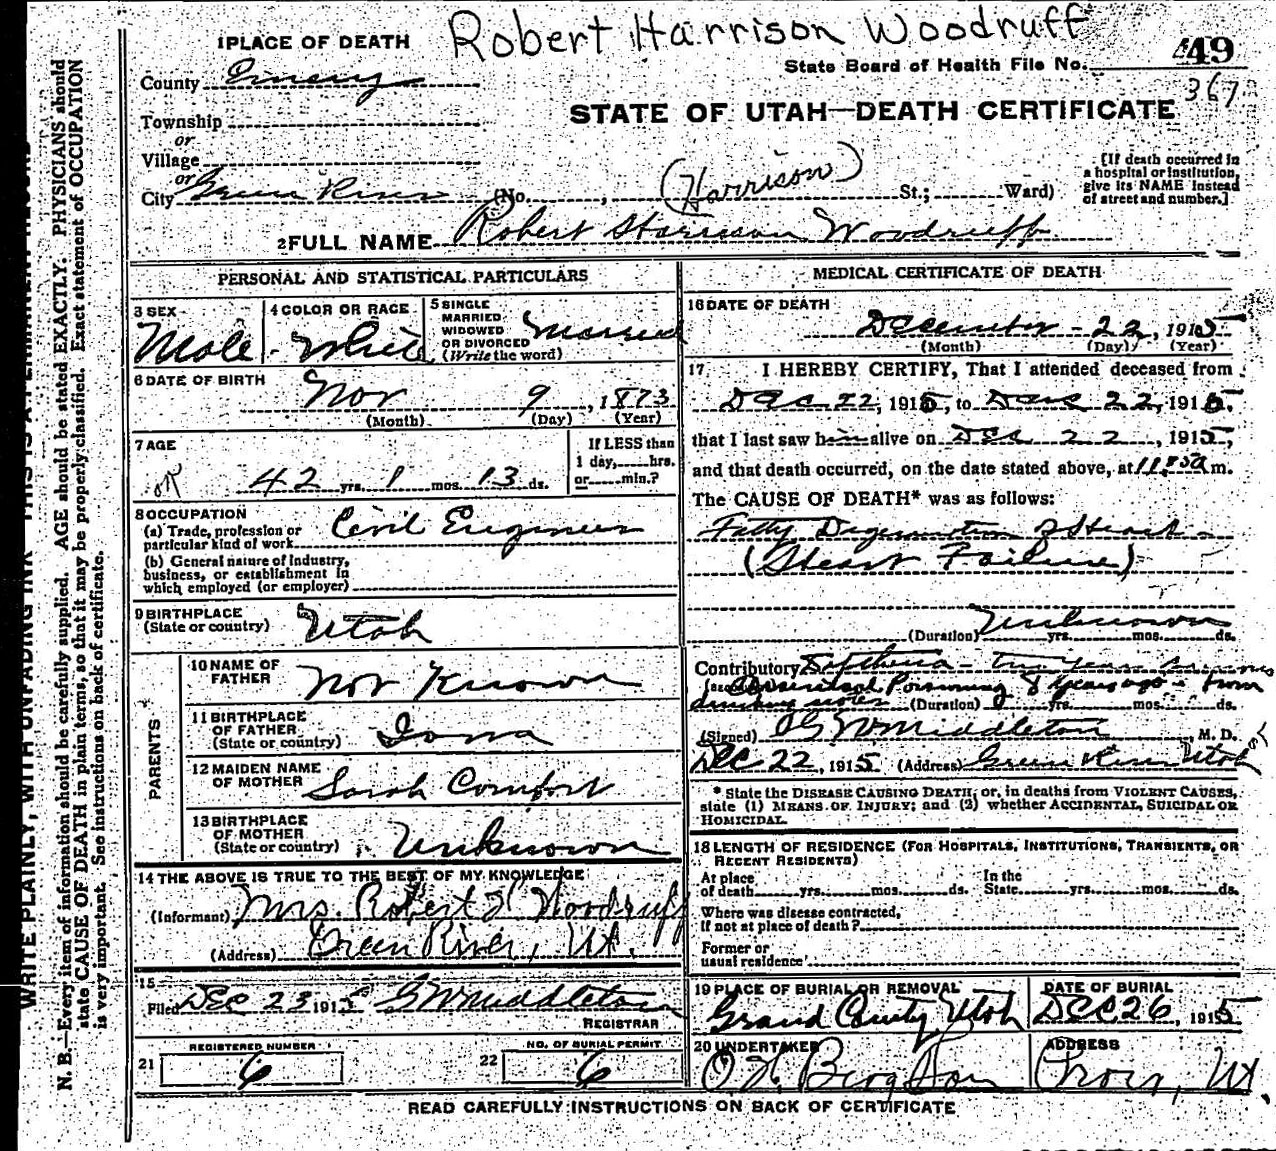 Robert Harrison Woodruff
1 PLACE OF DEATH
449
State Board of Health File No.
367
County Emery
STATE OF UTAH—DEATH CERTIFICATE
Township
or
Village
or
City Green River (No. , (Harrison) St.; Ward)
[If death occurred in
a hospital or institution,
give its NAME instead
of street and number.]
2 FULL NAME Robert Harrison Woodruff
PERSONAL AND STATISTICAL PARTICULARS
3 SEX
Male
4 COLOR OR RACE
White
5 SINGLE
MARRIED
WIDOWED
OR DIVORCED
(Write the word)
Married
6 DATE OF BIRTH
Nov 9, 1873
(Month) (Day) (Year)
7 AGE
OK 42 yrs. 1 mos. 13 ds.
If LESS than
1 day, hrs.
or min.?
8 OCCUPATION
(a) Trade, profession or
particular kind of work Civil Engineer
(b) General nature of industry,
business, or establishment in
which employed (or employer)
9 BIRTHPLACE
(State or country) Utah
PARENTS
10 NAME OF
FATHER Not Known
11 BIRTHPLACE
OF FATHER
(State or country) Iowa
12 MAIDEN NAME
OF MOTHER Sarah Comfort
13 BIRTHPLACE
OF MOTHER
(State or country) Unknown
14 THE ABOVE IS TRUE TO THE BEST OF MY KNOWLEDGE
(Informant) Mrs. Robert H Woodruff
(Address) Green River, Ut.
15
Filed DEC 23 1915 G W Middleton
REGISTRAR
21 REGISTERED NUMBER
6
22 NO. OF BURIAL PERMIT
6
MEDICAL CERTIFICATE OF DEATH
16 DATE OF DEATH
December - 22, 1915
(Month) (Day) (Year)
17 I HEREBY CERTIFY, That I attended deceased from
Dec 22, 1915, to Dec 22, 1915.
that I last saw him alive on Dec 22, 1915,
and that death occurred, on the date stated above, at 11:50 a m.
The CAUSE OF DEATH* was as follows:
Fatty Degeneration of Heart -
(Heart Failure)
Unknown
(Duration) yrs. mos. ds.
Contributory Diptheria - two years previous
Arsenical Poisoning 8 years ago - from
drinking water (Duration) yrs. mos. ds.
(Signed) G W Middleton, M. D.
Dec 22, 1915 (Address) Green River Utah
* State the DISEASE CAUSING DEATH; or, in deaths from VIOLENT CAUSES,
state (1) MEANS OF INJURY; and (2) whether ACCIDENTAL, SUICIDAL OR
HOMICIDAL.
18 LENGTH OF RESIDENCE (FOR HOSPITALS, INSTITUTIONS, TRANSIENTS, OR
RECENT RESIDENTS)
At place
of death yrs. mos. ds.
In the
State yrs. mos. ds.
Where was disease contracted,
if not at place of death?
Former or
usual residence
19 PLACE OF BURIAL OR REMOVAL
Grand County Utah
DATE OF BURIAL
DEC 26, 1915
20 UNDERTAKER
O H Berg & Son
ADDRESS
Provo, Ut.
READ CAREFULLY INSTRUCTIONS ON BACK OF CERTIFICATE
WRITE PLAINLY, WITH UNFADING INK—THIS IS A PERMANENT RECORD
N. B.—Every item of information should be carefully supplied. AGE should be stated EXACTLY. PHYSICIANS should
state CAUSE OF DEATH in plain terms, so that it may be properly classified. Exact statement of OCCUPATION
is very important. See instructions on back of certificate.